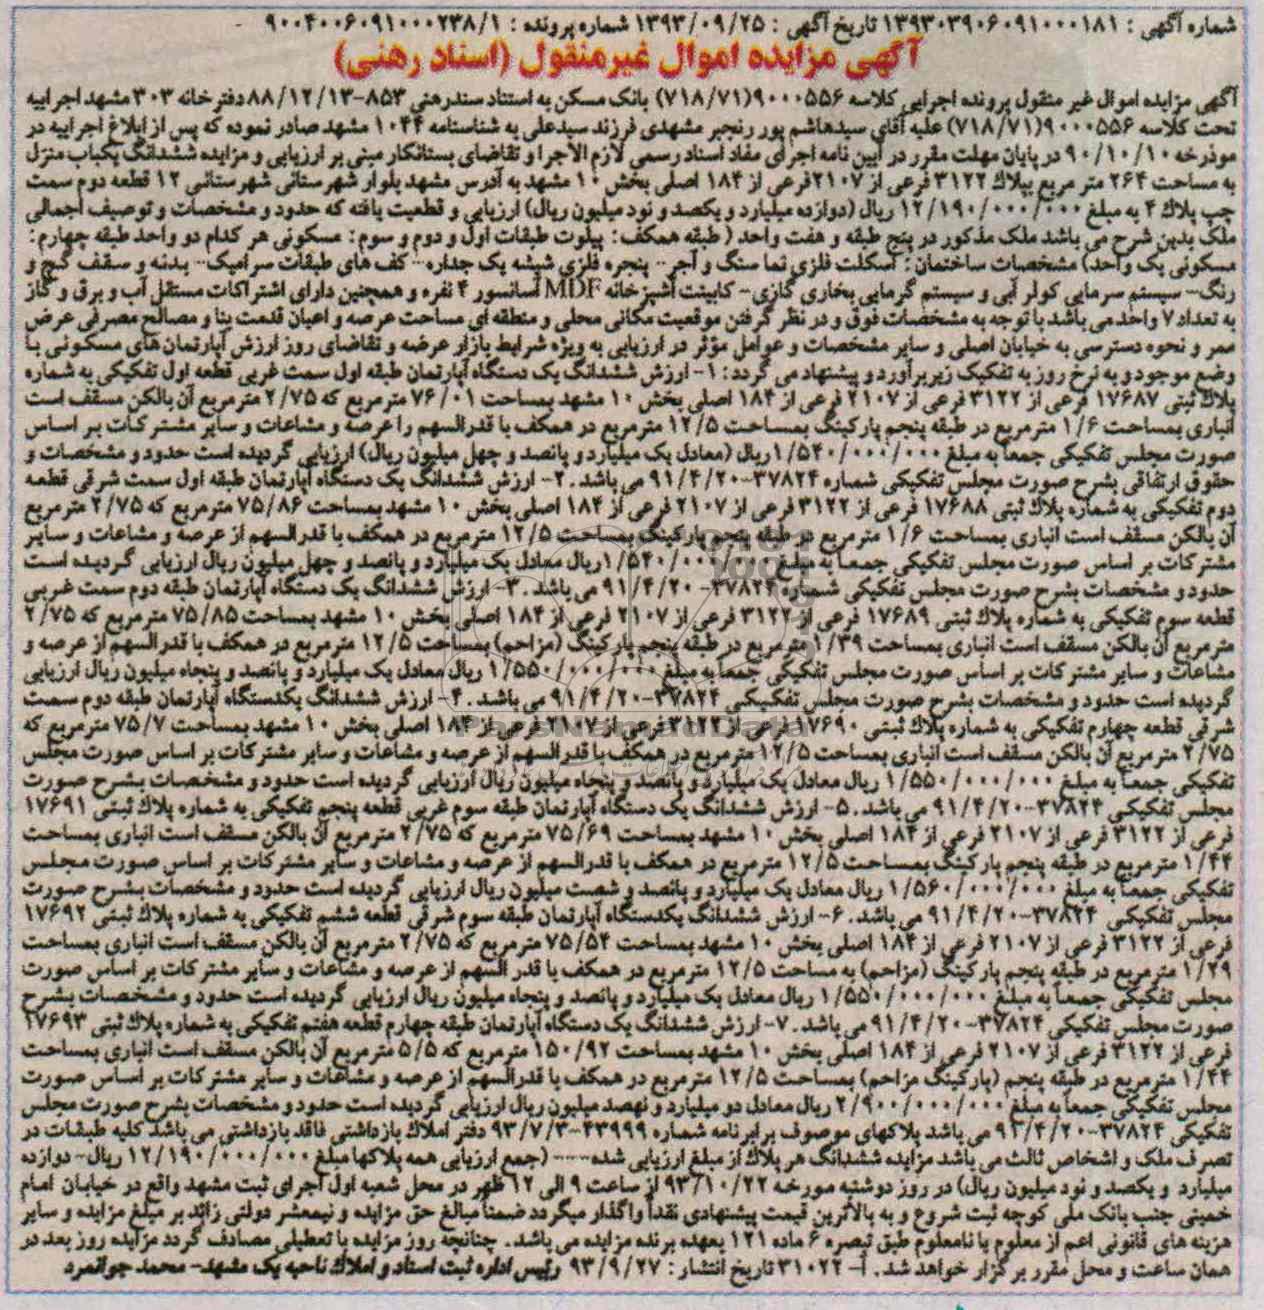 شماره آگهی : ۱۳۹۳۰۳۹۰۶۰۹۱۰۰۰۱۸۱ تاریخ آگهی : ۱۳۹۳/۰۹/۲۵ شماره پرونده : ۹۰۰۴۰۰۶۰۹۱۰۰۰۲۳۸/۱
آگهی مزایده اموال غیرمنقول (اسناد رهنی)
آگهی مزایده اموال غیر منقول پرونده اجرایی کلاسه ۹۰۰۰۵۵۶(۷۱۸/۷۱) بانک مسکن به استناد سندرهنی ۸۵۳-۸۸/۱۲/۱۳ دفترخانه ۳۰۳ مشهد اجراییه
تحت کلاسه ۹۰۰۰۵۵۶(۷۱۸/۷۱) علیه آقای سیدهاشم پور رنجبر مشهدی فرزند سیدعلی به شناسنامه ۱۰۴۴ مشهد صادر نموده که پس از ابلاغ اجراییه در
موذرخه ۹۰/۱۰/۱۰ در پایان مهلت مقرر در آیین نامه اجرای مفاد اسناد رسمی لازم الاجرا و تقاضای بستانکار مبنی بر ارزیابی و مزایده ششدانگ یکباب منزل
به مساحت ۲۶۴ متر مربع پپلاک ۳۱۲۲ فرعی از ۲۱۰۷فرعی از ۱۸۴ اصلی بخش ۱۰ مشهد به آدرس مشهد بلوار شهرستانی شهرستانی ۱۲ قطعه دوم سمت
چپ پلاک ۴ به مبلغ ۱۲/۱۹۰/۰۰۰/۰۰۰ ریال (دوازده میلیارد و یکصد و نود میلیون ریال) ارزیابی و قطعیت یافته که حدود و مشخصات و توصیف اجمالی
ملک بدین شرح می باشد ملک مذکور در پنج طبقه و هفت واحد ( طبقه همکف : پیلوت طبقات اول و دوم و سوم : مسکونی هر کدام دو واحد طبقه چهارم :
مسکونی یک واحد) مشخصات ساختمان : اسکلت فلزی نما سنگ و آجر-- پنجره فلزی شیشه یک جداره-- کف های طبقات سرامیک-- بدنه و سقف گچ و
رنگ-- سیستم سرمایی کولر آبی و سیستم گرمایی بخاری گازی- کابینت آشپزخانه MDF آسانسور ۴ نفره و همچنین دارای اشتراکات مستقل آب و برق و گاز
به تعداد ۷ واحد می باشد با توجه به مشخصات فوق و در نظر گرفتن موقعیت مکانی محلی و منطقه ای مساحت عرصه و اعیان قدمت بنا و مصالح مصرفی عرض
ممر و نحوه دسترسی به خیابان اصلی و سایر مشخصات و عوامل مؤثر در ارزیابی به ویژه شرایط بازار عرضه و تقاضای روز ارزش آپارتمان های مسکونی با
وضع موجود و به نرخ روز به تفکیک زیر برآورد و پیشنهاد می گردد : ۱- ارزش ششدانگ یک دستگاه آپارتمان طبقه اول سمت غربی قطعه اول تفکیکی به شماره
پلاک ثبتی ۱۷۶۸۷ فرعی از ۳۱۲۲ فرعی از ۲۱۰۷ فرعی از ۱۸۴ اصلی بخش ۱۰ مشهد بمساحت ۷۶/۰۱ مترمربع که ۲/۷۵ مترمربع آن بالکن مسقف است
انباری بمساحت ۱/۶ مترمربع در طبقه پنجم پارکینگ بمساحت ۱۲/۵ مترمربع در همکف با قدرالسهم را عرصه و مشاعات و سایر مشترکات بر اساس
صورت مجلس تفکیکی جمعاً به مبلغ ۱/۵۴۰/۰۰۰/۰۰۰ریال (معادل یک میلیارد و پانصد و چهل میلیون ریال) ارزیابی گردیده است حدود و مشخصات و
حقوق ارتفاقی بشرح صورت مجلس تفکیکی شماره ۳۷۸۲۴-۹۱/۴/۲۰ می باشد . ۲- ارزش ششدانگ یک دستگاه آپارتمان طبقه اول سمت شرقی قطعه
دوم تفکیکی به شماره پلاک ثبتی ۱۷۶۸۸ فرعی از ۳۱۲۲ فرعی از ۲۱۰۷ فرعی از ۱۸۴ اصلی بخش ۱۰ مشهد بمساحت ۷۵/۸۶ مترمربع که ۲/۷۵ مترمربع
آن بالکن مسقف است انباری بمساحت ۱/۶ مترمربع در طبقه پنجم پارکینگ بمساحت ۱۲/۵ مترمربع در همکف با قدرالسهم از عرصه و مشاعات و سایر
مشترکات بر اساس صورت مجلس تفکیکی جمعاً به مبلغ ۱/۵۴۰/۰۰۰/۰۰۰ریال معادل یک میلیارد و پانصد و چهل میلیون ریال ارزیابی گردیده است
حدود و مشخصات بشرح صورت مجلس تفکیکی شماره ۳۷۸۲۴-۹۱/۴/۲۰ می باشد . ۳- ارزش ششدانگ یک دستگاه آپارتمان طبقه دوم سمت غربی
قطعه سوم تفکیکی به شماره پلاک ثبتی ۱۷۶۸۹ فرعی از ۳۱۲۲ فرعی از ۲۱۰۷ فرعی از ۱۸۴ اصلی بخش ۱۰ مشهد بمساحت ۷۵/۸۵ مترمربع که ۲/۷۵
مترمربع آن بالکن مسقف است انباری بمساحت ۱/۳۹ مترمربع در طبقه پنجم پارکینگ (مزاحم) بمساحت ۱۲/۵ مترمربع در همکف با قدرالسهم از عرصه و
مشاعات و سایر مشترکات بر اساس صورت مجلس تفکیکی جمعاً به مبلغ ۱/۵۵۰/۰۰۰/۰۰۰ ریال معادل یک میلیارد و پانصد و پنجاه میلیون ریال ارزیابی
گردیده است حدود و مشخصات بشرح صورت مجلس تفکیکی ۳۷۸۲۴-۹۱/۴/۲۰ می باشد . ۴- ارزش ششدانگ یکدستگاه آپارتمان طبقه دوم سمت
شرقی قطعه چهارم تفکیکی به شماره پلاک ثبتی ۱۷۶۹۰ فرعی از ۳۱۲۲ فرعی از ۲۱۰۷ فرعی از ۱۸۴ اصلی بخش ۱۰ مشهد بمساحت ۷۵/۷ مترمربع که
۲/۷۵ مترمربع آن بالکن مسقف است انباری بمساحت ۱۲/۵ مترمربع در همکف با قدرالسهم از عرصه و مشاعات و سایر مشترکات بر اساس صورت مجلس
تفکیکی جمعاً به مبلغ ۱/۵۵۰/۰۰۰/۰۰۰ ریال معادل یک میلیارد و پانصد و پنجاه میلیون ریال ارزیابی گردیده است حدود و مشخصات بشرح صورت
مجلس تفکیکی ۳۷۸۲۴-۹۱/۴/۲۰ می باشد . ۵- ارزش ششدانگ یک دستگاه آپارتمان طبقه سوم غربی قطعه پنجم تفکیکی به شماره پلاک ثبتی ۱۷۶۹۱
فرعی از ۳۱۲۲ فرعی از ۲۱۰۷ فرعی از ۱۸۴ اصلی بخش ۱۰ مشهد بمساحت ۷۵/۶۹ مترمربع که ۲/۷۵ مترمربع آن بالکن مسقف است انباری بمساحت
۱/۴۴ مترمربع در طبقه پنجم پارکینگ بمساحت ۱۲/۵ مترمربع در همکف با قدرالسهم از عرصه و مشاعات و سایر مشترکات بر اساس صورت مجلس
تفکیکی جمعاً به مبلغ ۱/۵۶۰/۰۰۰/۰۰۰ ریال معادل یک میلیارد و پانصد و شصت میلیون ریال ارزیابی گردیده است حدود و مشخصات بشرح صورت
مجلس تفکیکی ۳۷۸۲۴-۹۱/۴/۲۰ می باشد . ۶- ارزش ششدانگ یکدستگاه آپارتمان طبقه سوم شرقی قطعه ششم تفکیکی به شماره پلاک ثبتی ۱۷۶۹۲
فرعی از ۳۱۲۲ فرعی از ۲۱۰۷ فرعی از ۱۸۴ اصلی بخش ۱۰ مشهد بمساحت ۷۵/۵۴ مترمربع که ۲/۷۵ مترمربع آن بالکن مسقف است انباری بمساحت
۱/۲۹ مترمربع در طبقه پنجم پارکینگ (مزاحم) به مساحت ۱۲/۵ مترمربع در همکف با قدر السهم از عرصه و مشاعات و سایر مشترکات بر اساس صورت
مجلس تفکیکی جمعاً به مبلغ ۱/۵۵۰/۰۰۰/۰۰۰ ریال معادل یک میلیارد و پانصد و پنجاه میلیون ریال ارزیابی گردیده است حدود و مشخصات بشرح
صورت مجلس تفکیکی ۳۷۸۲۴-۹۱/۴/۲۰ می باشد . ۷- ارزش ششدانگ یک دستگاه آپارتمان طبقه چهارم قطعه هفتم تفکیکی به شماره پلاک ثبتی ۱۷۶۹۳
فرعی از ۳۱۲۲ فرعی از ۲۱۰۷ فرعی از ۱۸۴ اصلی بخش ۱۰ مشهد بمساحت ۱۵۰/۹۲ مترمربع که ۵/۵ مترمربع آن بالکن مسقف است انباری بمساحت
۱/۴۴ مترمربع در طبقه پنجم (پارکینگ مزاحم) بمساحت ۱۲/۵ مترمربع در همکف با قدرالسهم از عرصه و مشاعات و سایر مشترکات بر اساس صورت
مجلس تفکیکی جمعاً به مبلغ ۲/۹۰۰/۰۰۰/۰۰۰ ریال معادل دو میلیارد و نهصد میلیون ریال ارزیابی گردیده است حدود و مشخصات بشرح صورت مجلس
تفکیکی ۳۷۸۲۴-۹۱/۴/۲۰ می باشد پلاکهای موصوف برابر نامه شماره ۴۳۹۹۹-۹۳/۷/۳ دفتر املاک بازداشتی فاقد بازداشتی می باشد کلیه طبقات در
تصرف ملک و اشخاص ثالث می باشد مزایده ششدانگ هر پلاک از مبلغ ارزیابی شده---- (جمع ارزیابی همه پلاکها مبلغ ۱۲/۱۹۰/۰۰۰/۰۰۰ ریال- دوازده
میلیارد و یکصد و نود میلیون ریال) در روز دوشنبه مورخه ۹۳/۱۰/۲۲ از ساعت ۹ الی ۱۲ ظهر در محل شعبه اول اجرای ثبت مشهد واقع در خیابان امام
خمینی جنب بانک ملی کوچه ثبت شروع و به بالاترین قیمت پیشنهادی نقداً واگذار میگردد ضمناً مبالغ حق مزایده و نیمعشر دولتی زائد بر مبلغ مزایده و سایر
هزینه های قانونی اعم از معلوم یا نامعلوم طبق تبصره ۶ ماده ۱۲۱ بعهده برنده مزایده می باشد . چنانچه روز مزایده با تعطیلی مصادف گردد مزایده روز بعد در
همان ساعت و محل مقرر برگزار خواهد شد . آ- ۳۱۰۲۲ تاریخ انتشار : ۹۳/۹/۲۷ رئیس اداره ثبت اسناد و املاک ناحیه یک مشهد- محمد جوانمرد
ParsNamadData